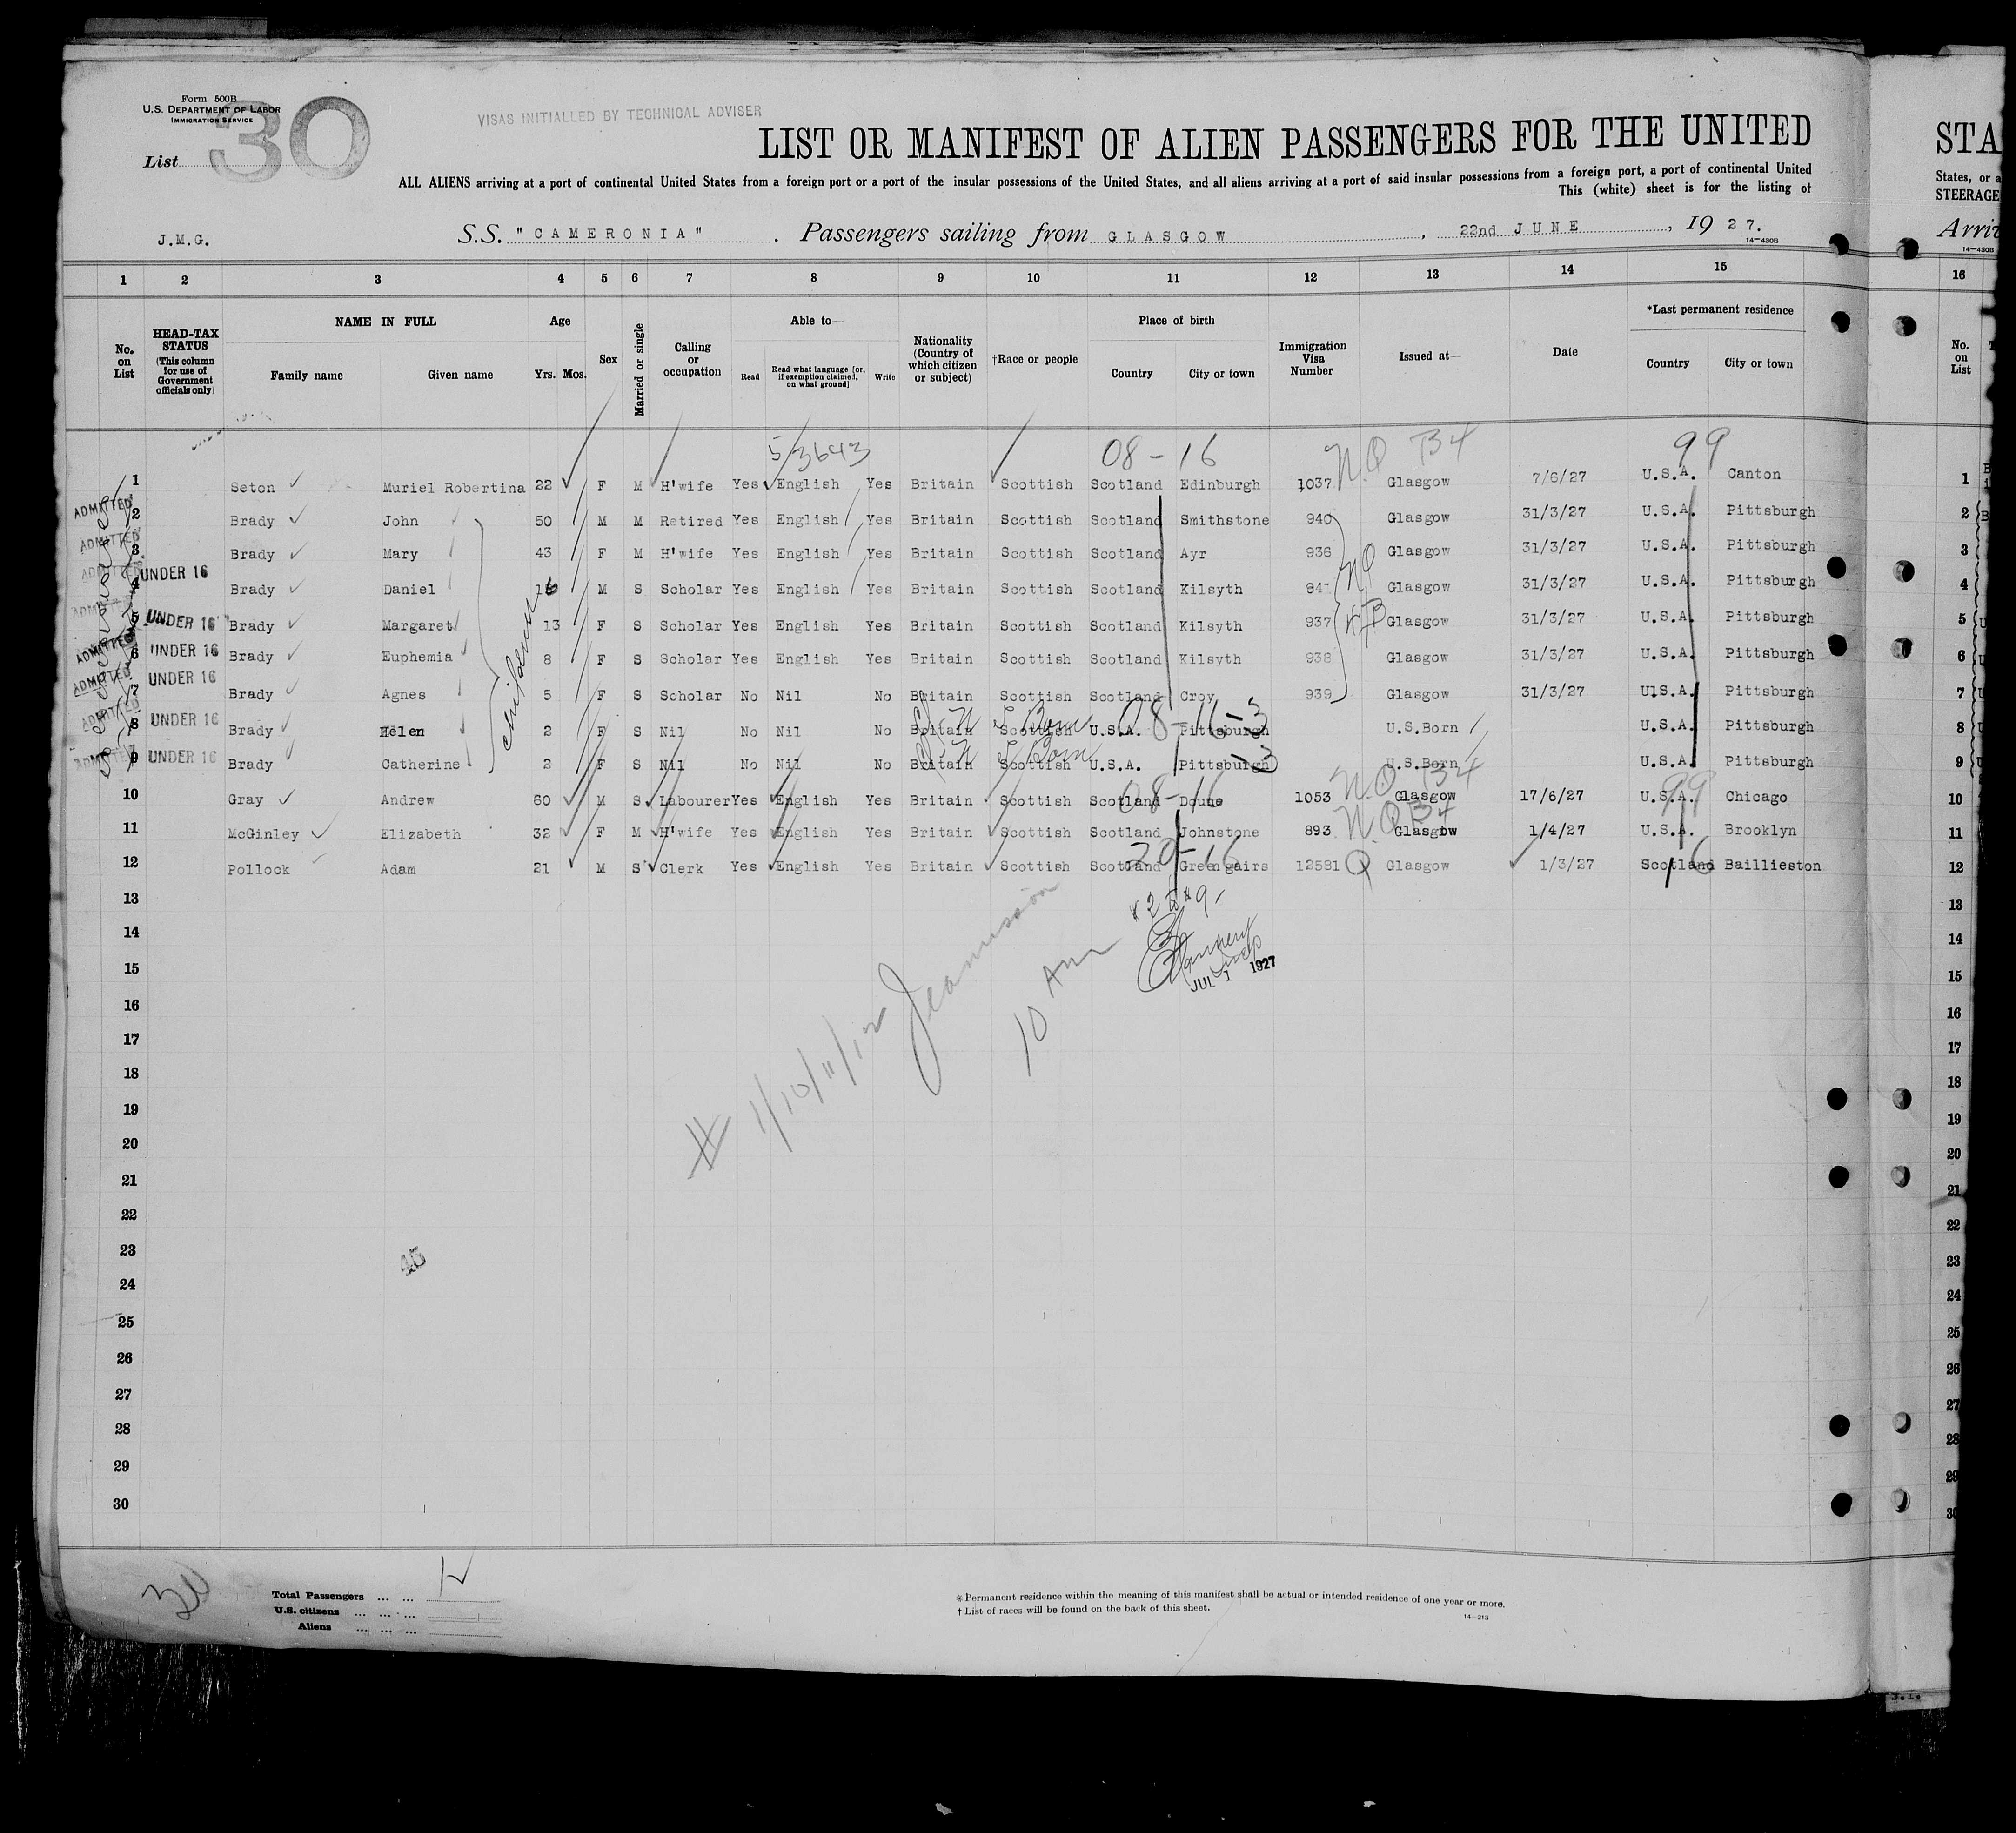 Form 500B
U.S. DEPARTMENT OF LABOR
IMMIGRATION SERVICE
30
VISAS INITIALLED BY TECHNICAL ADVISER
List
LIST OR MANIFEST OF ALIEN PASSENGERS FOR THE UNITED
STA
ALL ALIENS arriving at a port of continental United States from a foreign port or a port of the insular possessions of the United States, and all aliens arriving at a port of said insular possessions from a foreign port, a port of continental United
States, or a
This (white) sheet is for the listing of
STEERAGE
J.M.G.
S.S. "CAMERONIA". Passengers sailing from GLASGOW, 22nd JUNE, 1927.
Arri
14—430B
14—430B
1 2 3 4 5 6 7 8 9 10 11 12 13 14 15 16
No. on List
HEAD-TAX STATUS (This column for use of Government officials only)
NAME IN FULL
Family name Given name
Age
Yrs. Mos.
Sex
Married or single
Calling or occupation
Able to—
Read
Read what language [or, if exemption claimed, on what ground]
Write
Nationality (Country of which citizen or subject)
†Race or people
Place of birth
Country City or town
Immigration Visa Number
Issued at—
Date
*Last permanent residence
Country City or town
No. on List
5/3643 08-16 N.Q B4 99
1 Seton Muriel Robertina 22 F M H'wife Yes English Yes Britain Scottish Scotland Edinburgh 1037 Glasgow 7/6/27 U.S.A. Canton 1
ADMITTED
2 Brady John 50 M M Retired Yes English Yes Britain Scottish Scotland Smithstone 940 Glasgow 31/3/27 U.S.A. Pittsburgh 2
ADMITTED
3 Brady Mary 43 F M H'wife Yes English Yes Britain Scottish Scotland Ayr 936 Glasgow 31/3/27 U.S.A. Pittsburgh 3
ADMITTED
UNDER 16
4 Brady Daniel 16 M S Scholar Yes English Yes Britain Scottish Scotland Kilsyth 941 Glasgow 31/3/27 U.S.A. Pittsburgh 4
ADMITTED
UNDER 16
5 Brady Margaret 13 F S Scholar Yes English Yes Britain Scottish Scotland Kilsyth 937 Glasgow 31/3/27 U.S.A. Pittsburgh 5
ADMITTED
UNDER 16
6 Brady Euphemia 8 F S Scholar Yes English Yes Britain Scottish Scotland Kilsyth 938 Glasgow 31/3/27 U.S.A. Pittsburgh 6
ADMITTED
UNDER 16
7 Brady Agnes 5 F S Scholar No Nil No Britain Scottish Scotland Croy 939 Glasgow 31/3/27 U.S.A. Pittsburgh 7
children
NQ
B4
ADMITTED
UNDER 16
08-16-3
8 Brady Helen 2 F S Nil No Nil No Britain Scottish U.S.A. Pittsburgh U.S.Born U.S.A. Pittsburgh 8
Born
ADMITTED
UNDER 16
9 Brady Catherine 2 F S Nil No Nil No Britain Scottish U.S.A. Pittsburgh U.S.Born U.S.A. Pittsburgh 9
Born -3
08-16 N.Q B4 99
10 Gray Andrew 60 M S Labourer Yes English Yes Britain Scottish Scotland Doune 1053 Glasgow 17/6/27 U.S.A. Chicago 10
N.Q B4
11 McGinley Elizabeth 32 F M H'wife Yes English Yes Britain Scottish Scotland Johnstone 893 Glasgow 1/4/27 U.S.A. Brooklyn 11
20-16 16
12 Pollock Adam 21 M S Clerk Yes English Yes Britain Scottish Scotland Greengairs 12581 Q Glasgow 1/3/27 Scotland Baillieston 12
13 13
14 14
JUL 1 1927
15 15
16 16
# 1/10/11/12 Jeannison
17 17
18 18
19 19
20 20
21 21
22 22
23 23
45
24 24
25 25
26 26
27 27
28 28
29 29
30 30
30
Total Passengers 12
U.S. citizens
Aliens
*Permanent residence within the meaning of this manifest shall be actual or intended residence of one year or more.
†List of races will be found on the back of this sheet.
14—213